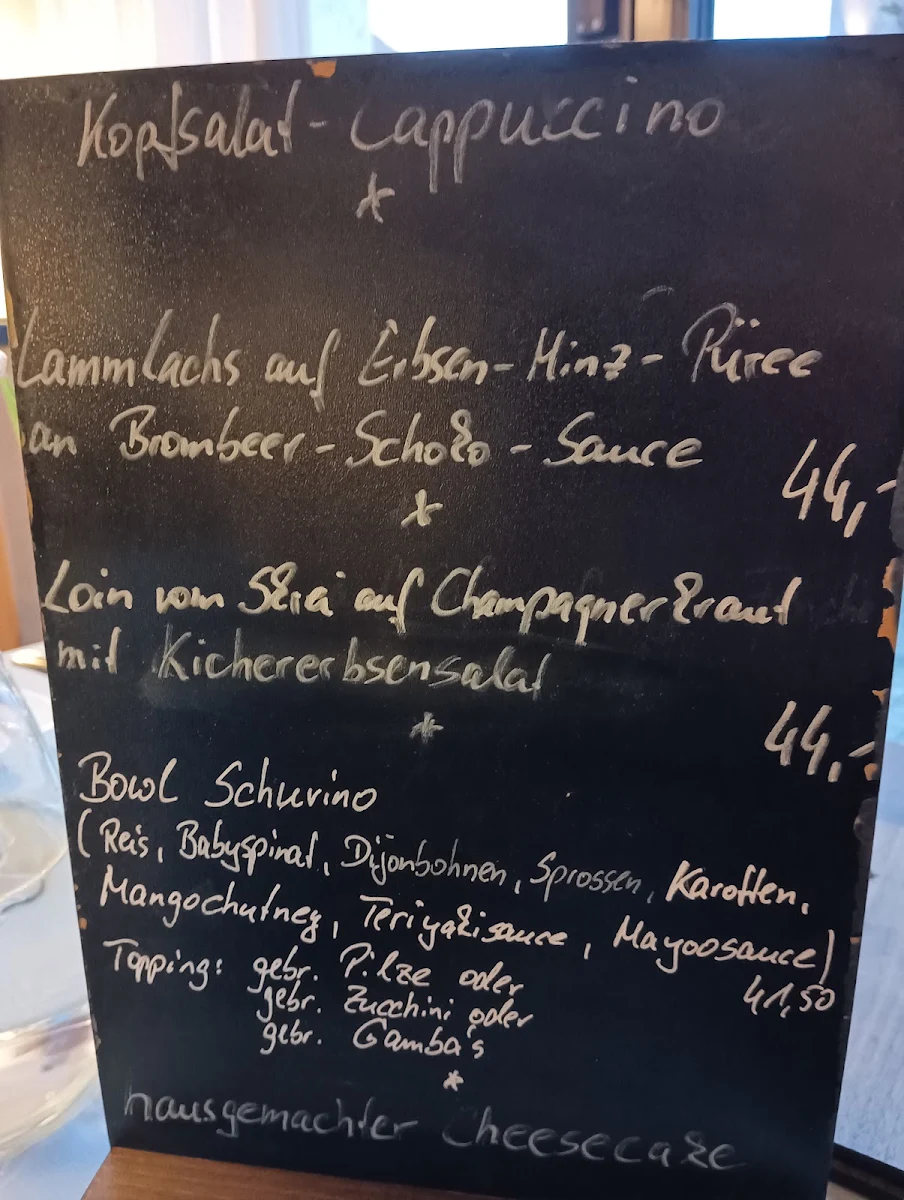 Kopfsalat - Cappuccino
*
Lammlachs auf Erbsen-Minz-Püree
an Brombeer-Schoko-Sauce
44,-
*
Loin vom Skrei auf Champagnerkraut
mit Kichererbsensalat
*
44,-
Bowl Schurino
(Reis, Babyspinat, Dijonbohnen, Sprossen, Karotten,
Mangochutney, Teriyakisauce, Mayoosauce)
41,50
Topping: gebr. Pilze oder
gebr. Zucchini oder
gebr. Gamba's
*
hausgemachter Cheesecake